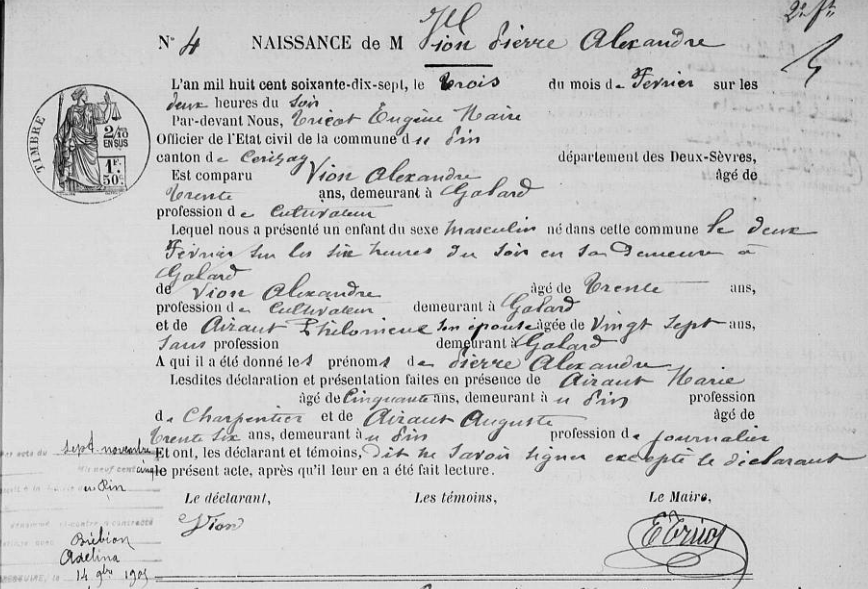 2e ft
N° 4 NAISSANCE de M Vion Pierre Alexandre
L'an mil huit cent soixante-dix-sept, le trois du mois de Février sur les
deux heures du soir
Par-devant Nous, Tricot Eugène Maire
Officier de l'Etat civil de la commune du Pin
canton de Cerizay département des Deux-Sèvres,
Est comparu Vion Alexandre âgé de
trente ans, demeurant à Galard
profession de cultivateur
Lequel nous a présenté un enfant du sexe masculin né dans cette commune le deux
Février sur les six heures du soir en sa demeure à
Galard
de Vion Alexandre âgé de trente ans,
profession de cultivateur demeurant à Galard
et de Airaut Philomène son épouse âgée de vingt sept ans,
sans profession demeurant à Galard
A qui il a été donné les prénoms de Pierre Alexandre
Lesdites déclaration et présentation faites en présence de Airaut Marie
âgé de cinquante ans, demeurant à u Pin profession
de charpentier et de Airaut Auguste âgé de
trente six ans, demeurant à u Pin profession de journalier
Et ont, les déclarant et témoins, dit ne savoir signer excepté le déclarant
le présent acte, après qu'il leur en a été fait lecture.
Le déclarant, Les témoins, Le Maire,
Vion ETricot
TIMBRE
2/10
EN SUS
1F.
50c.
sept novembre
Mil neuf cent cinq
du Pin
Brébion
Adelina
14 9bre 1905